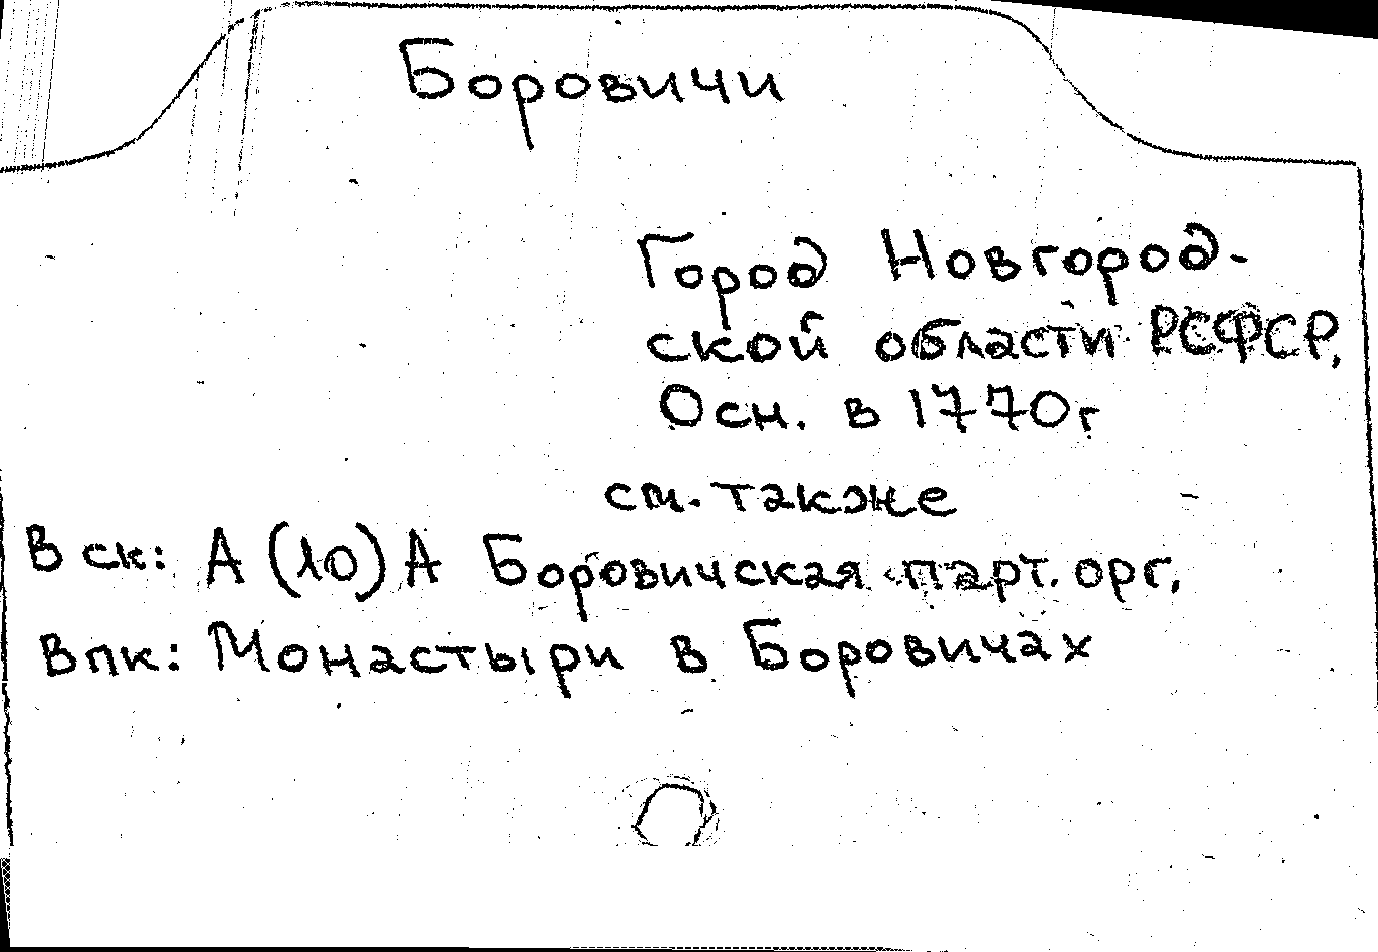 Боровичи
Город Новгород-
ской области РСФСР,
Осн. в 1770г
см. также
В ск: А (10) А Боровичская парт. орг,
В пк: Монастыри в Боровичах